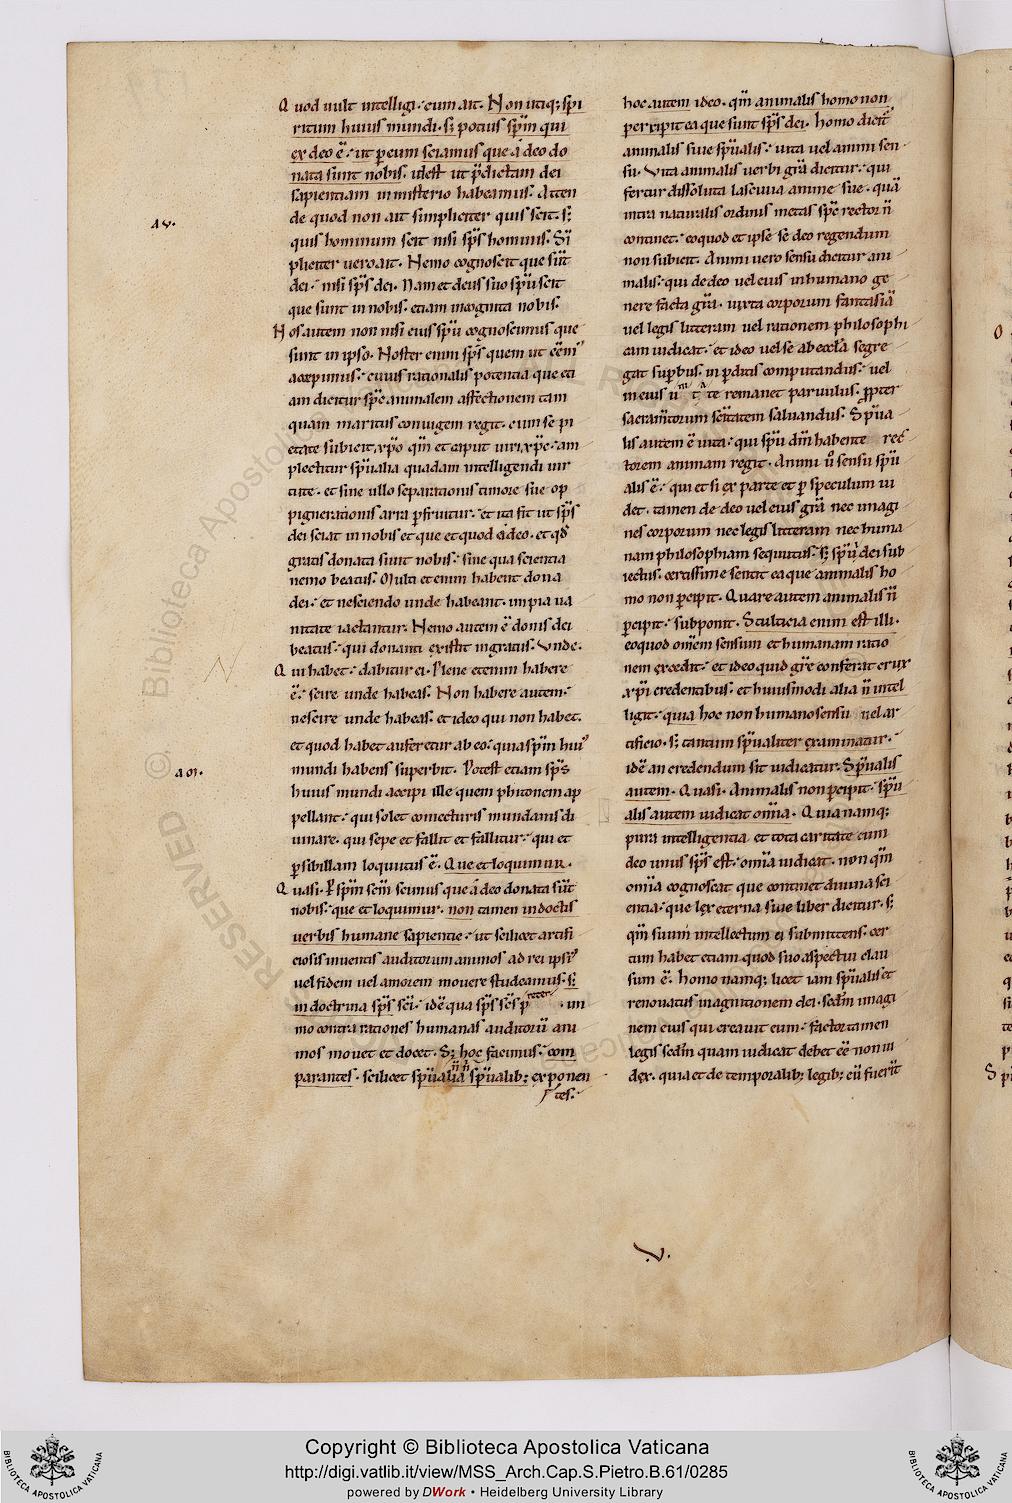 Quod uult intelligi. cum ait. Non utiq; sp̅i
ritum huius mundi. s; potius sp̅m qui
ex deo e̅. ut per eum sciamus que a deo do
nata sunt nobis. idest ut p̅dictam dei
sapientiam in misterio habeamus. Atten
de quod non ait simpliciter quis scit. s;
quis hominum scit nisi sp̅s hominis. Si̅
pliciter uero ait. Nemo cognoscit que su̅t
dei. nisi sp̅s dei. Nam et deus suo sp̅u scit
que sunt in nobis. etiam incognita nobis.
Nos autem non nisi eius sp̅u cognoscimus que
sunt in ipso. Noster enim sp̅s quem ut
accepimus. cuius rationalis potentia que eti
am dicitur sp̅c animalem affectionem tam
quam maritus coniugem regit. cum se pi
etate subicit xp̅o qm̅ et caput uiri xp̅c. am
plectitur sp̅ualia quadam intelligendi uir
tute. et sine ullo separationis timore sue op
pignerationis arra p̱fruitur. et ita fit ut sp̅s
dei sciat in nobis et que et quod a deo. et qd̅
gratis donata sunt nobis. sine qua scientia
nemo beatus. Multi etenim habent dona
dei. et nesciendo unde habeant. impia ua
nitate iactantur. Nemo autem e̅ donis dei
beatus. qui donanti existit ingratus. Vnde.
Qui habet. dabitur ei. Plene etenim habere
e̅. scire unde habeas. Non habere autem.
nescire unde habeas. et ideo qui non habet.
et quod habet auferetur ab eo. quia sp̅m hui'
mundi habens superbit. Potest etiam sp̅s
huius mundi accipi ille quem phitonem ap
pellant. qui solet coniecturis mundanis di
uinare. qui sepe et fallit et fallitur. qui et
p̱ sibillam loquutus e̅. Que et loquimur.
Quasi. P̱ sp̅m scm̅ scimus que a deo donata su̅t
nobis. que et loquimur. non tamen in doctis
uerbis humane sapientie. ut scilicet artifi
ciosis inuentis auditorum animos ad rei ipsi'
uel fidem uel amorem mouere studeamus. s;
in doctrina sp̅s sci̅. ide̅ qua sp̅s sc̅s p̅ . im
mo contra rationes humanas auditoru̅ ani
mos mouet et docet. S; hoc facimus. com
parantes. scilicet sp̅ualia sp̅ualib; exponen
tes.
hoc autem ideo. qm̅ animalis homo non
percipit ea que sunt sp̅s dei. homo dicit̅
animalis siue sp̅ualis. uita uel animi sen
su. Vita animalis uerbi gra̅ dicitur. qui
fertur dissoluta lasciuia anime sue. qua̅
intra naturalis ordinis metas sp̅c rector n̅
continet. eo quod et ipse se deo regendum
non subicit. Animi uero sensu dicitur ani
malis. qui de deo uel eius in humano ge
nere facta gra̅. iuxta corporum fantasia̅
uel legis litteram uel rationem philosophi
cam iudicat. et ideo uel se ab eccl̅a segre
gat sup̱bus. in p̱ditis computandus. uel
in eius te remanet paruulus. p̱pter
sacram̅torum sc̅itatem saluandus. Sp̅ua
lis autem e̅ uita. qui sp̅u dm̅ habente rec
torem animam regit. Animi u̅o sensu sp̅u
alis e̅. qui et si ex parte et p̱ speculum ui
det. tamen de deo uel eius gra̅ nec imagi
nes corporum nec legis litteram nec huma
nam philosophiam sequutus. s; sp̅ui dei sub
iectus. certissime sentit ea que animalis ho
mo non p̱cipit. Quare autem animalis n̅
p̱cipit. subponit. Stulticia enim est illi.
eo quod om̅em sensum et humanam ratio
nem excedit. et ideo quid gr̅e conferat crux
xp̅i credentibus. et huiusmodi alia n̅ intel
ligit. quia hoc non humano sensu uel ar
tificio. s; tantum sp̅ualiter examinatur.
ide̅ an credendum sit iudicatur. Sp̅ualis
autem. Quasi. Animalis non p̱cipit. sp̅u
alis autem iudicat om̅ia. Quia namq;
pura intelligentia et tota caritate cum
deo unus sp̅s est. om̅ia iudicat. non qm̅
om̅ia cognoscat que continet diuina sci
entia. que lex eterna siue liber dicitur. s;
qm̅ suum intellectum ei submittens. cer
tum habet etiam quod suo aspectui clau
sum e̅. homo namq; licet iam sp̅ualis et
renouatus in agnitionem dei. scd̅m imagi
nem eius qui creauit eum. factor tamen
legis scd̅m quam iudicat debet ee̅ non iu
dex. quia et de temporalib; legib; cu̅ fueri̅t
av.
aoi.
.V.
Copyright © Biblioteca Apostolica Vaticana
http://digi.vatlib.it/view/MSS_Arch.Cap.S.Pietro.B.61/0285
powered by DWork • Heidelberg University Library